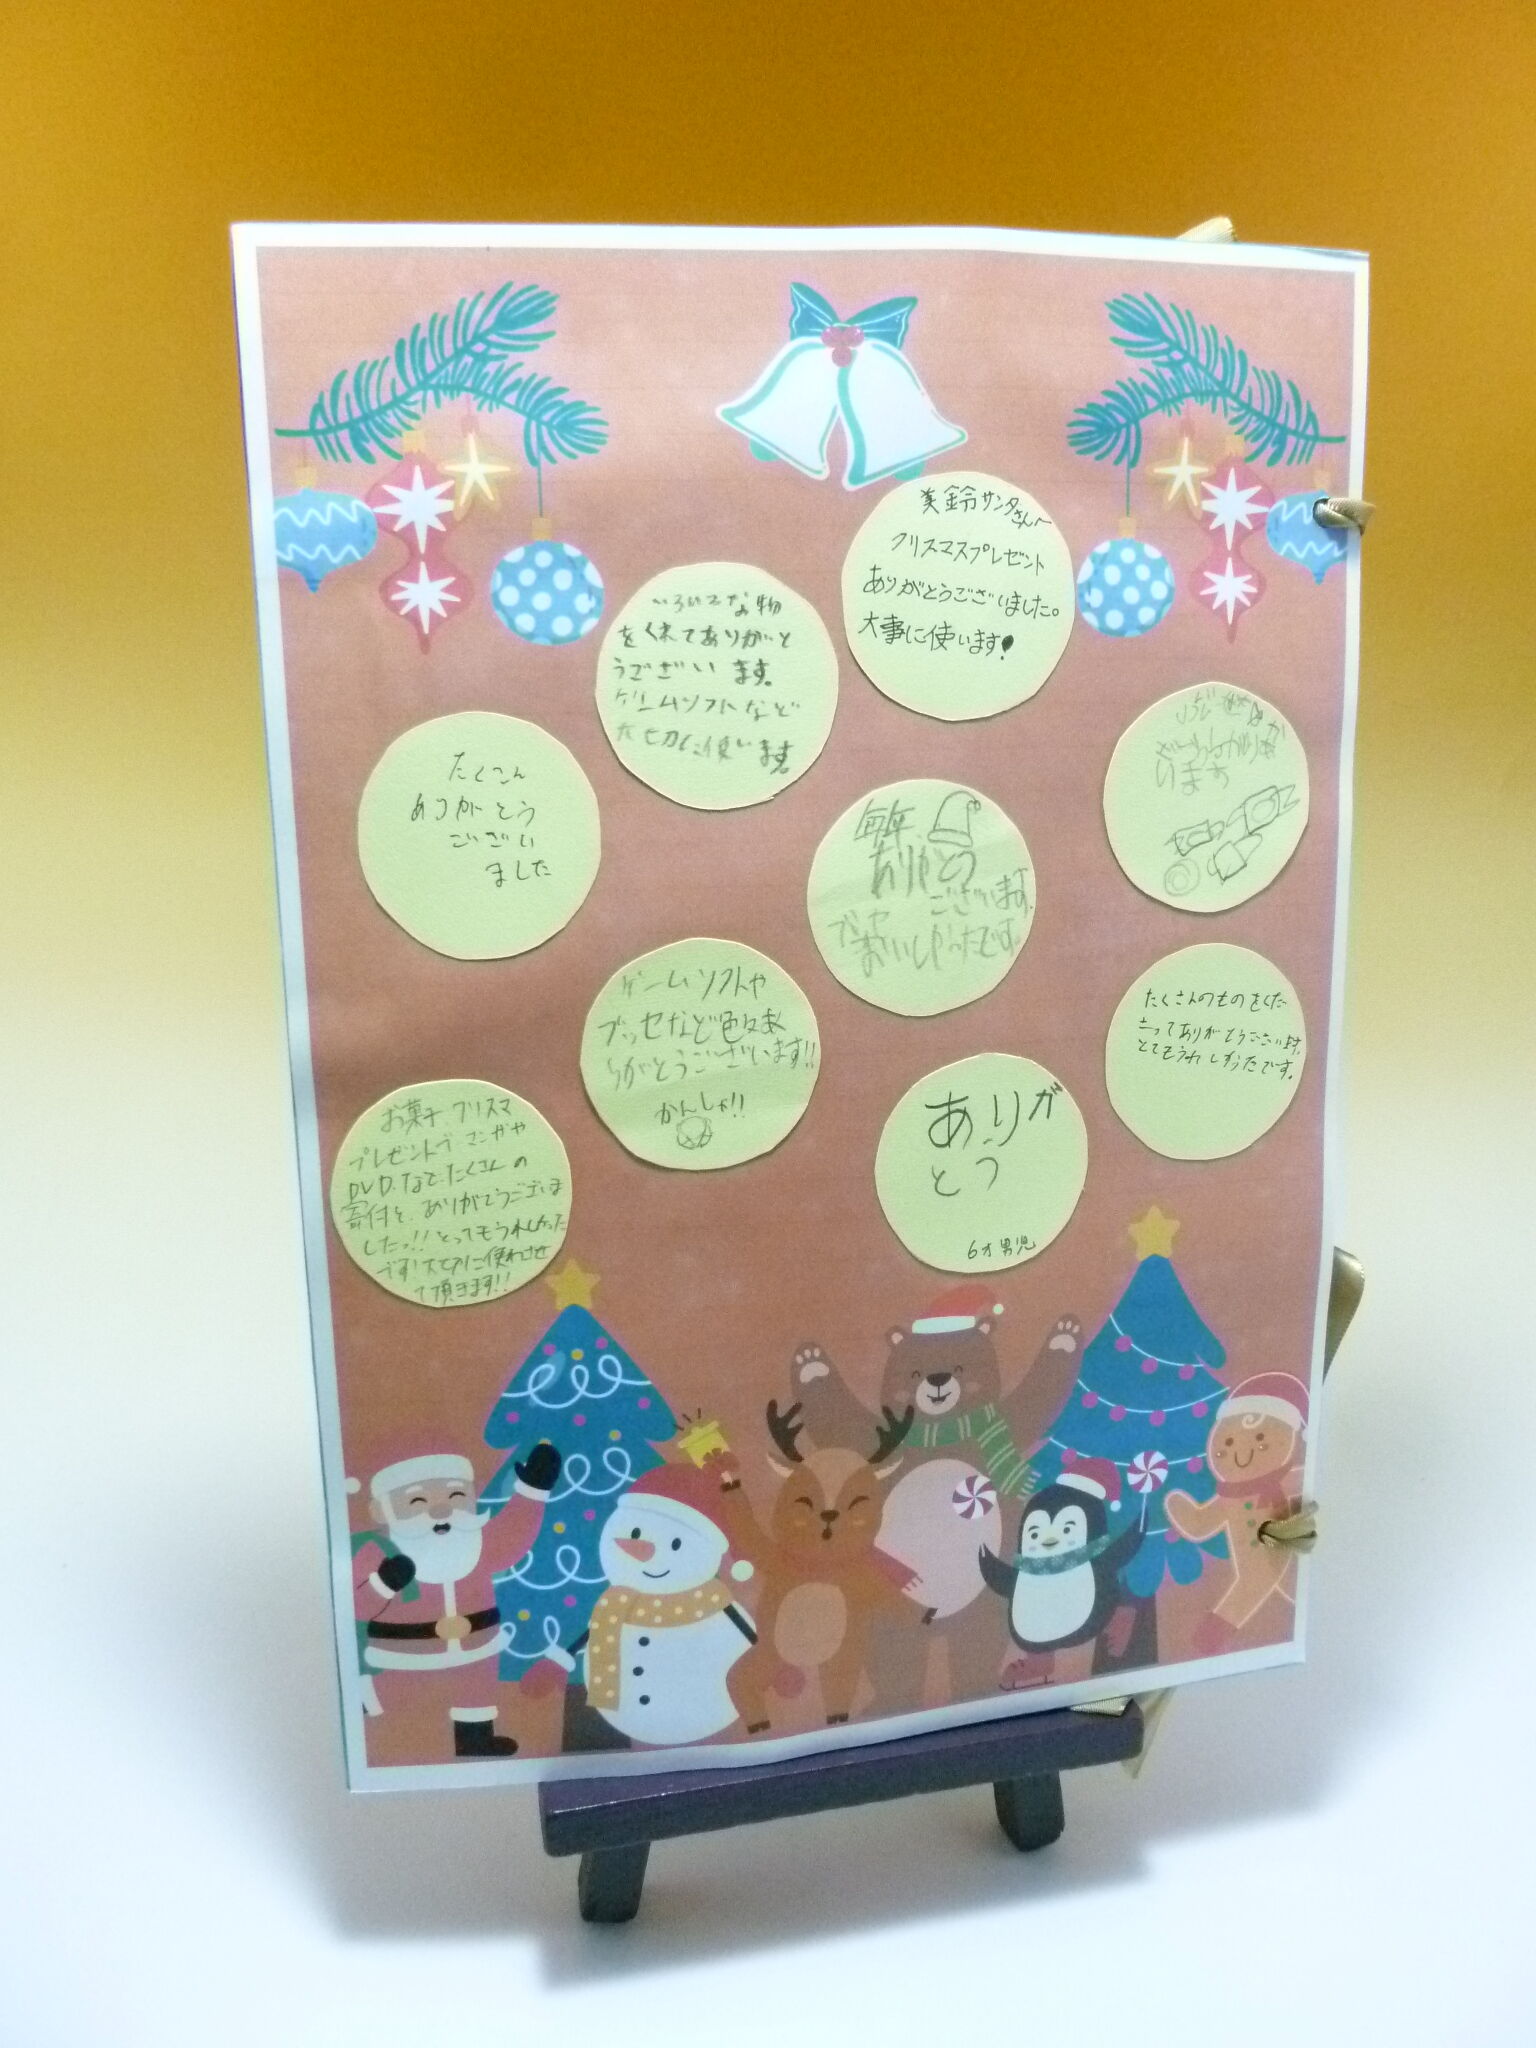 美鈴サンタさんへ
クリスマスプレゼント
ありがとうございました。
大事に使います!
いろいろな物
をくれてありがと
うございます。
ゲームソフトなど
大切に使います。
たくさん
ありがとう
ござい
ました
毎年
ありがとう
ございます。
ブッセ
おいしかったです。
います
ゲームソフトや
ブッセなど色々あ
りがとうございます!!
かんしゃ!!
たくさんのものをくだ
さってありがとうございます。
とてもうれしかったです。
お菓子、クリスマ
プレゼントで
DVDなどたくさんの
寄付を、ありがとうございま
したっ!!とってもうれしかった
です!大切に使わせ
て頂きます!!
ありが
とう
6才男児